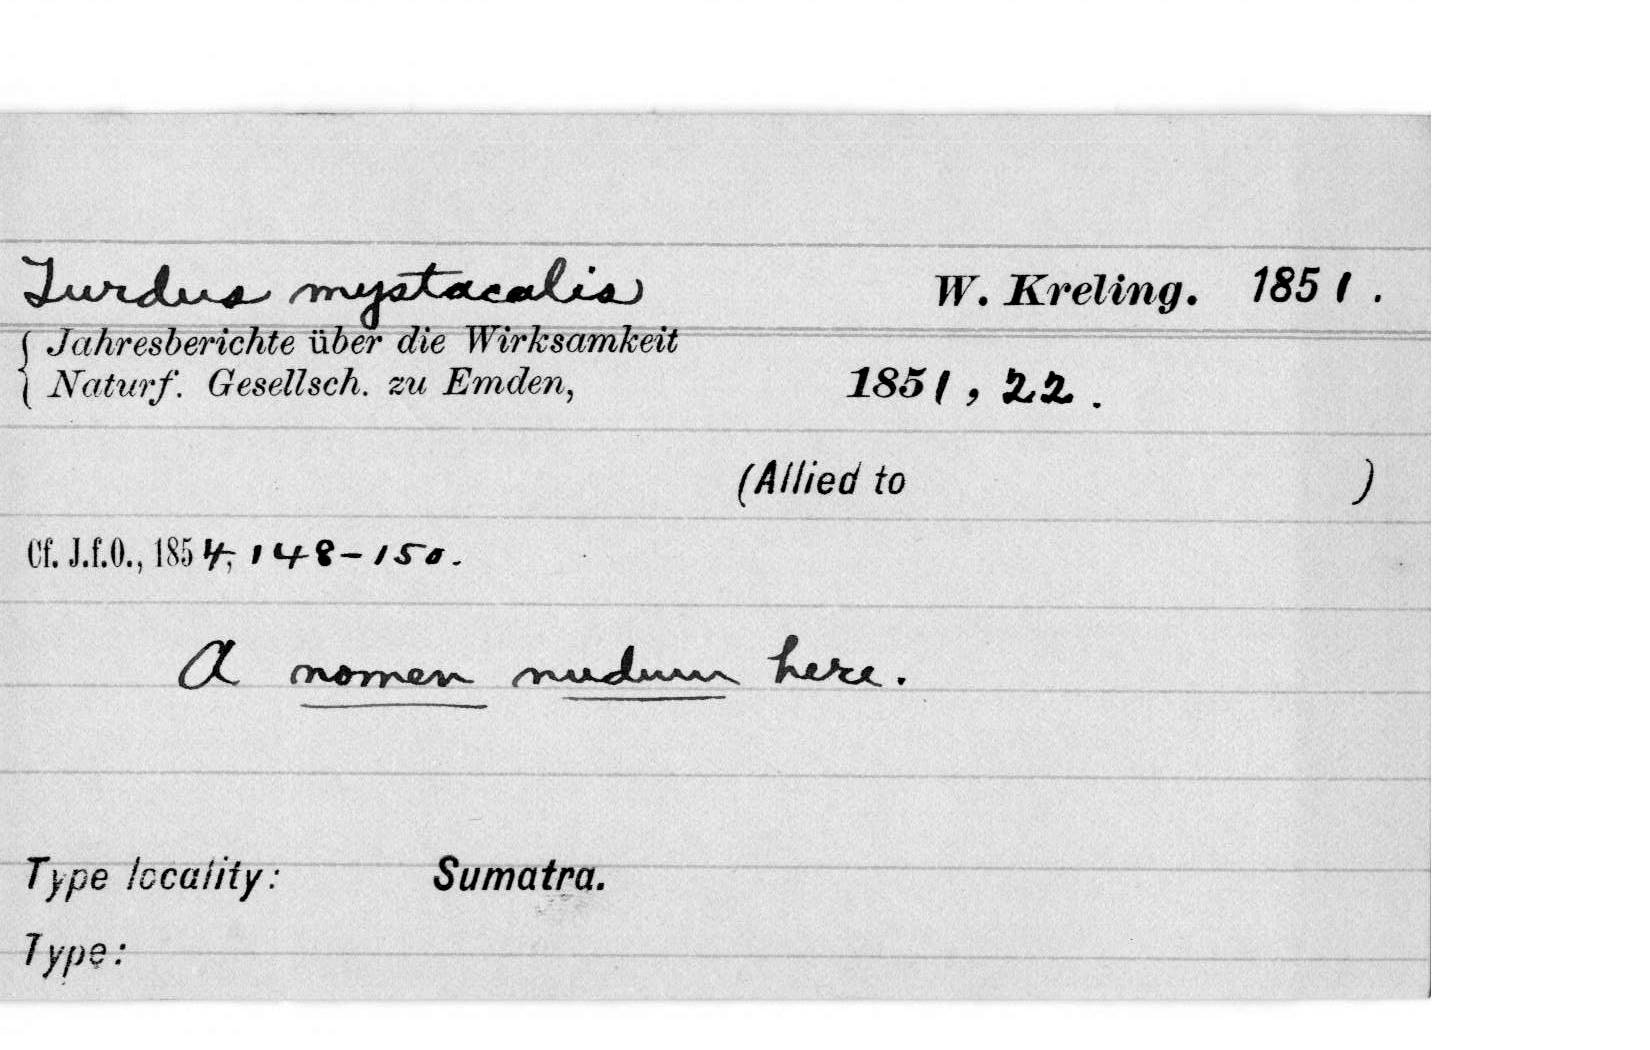 Turdus mystacalis W. Kreling. 1851.
{ Jahresberichte über die Wirksamkeit
{ Naturf. Gesellsch. zu Emden, 1851, 22.
(Allied to )
Cf. J.f.O., 1854, 148–150.
A nomen nudum here.
Type locality: Sumatra.
Type: